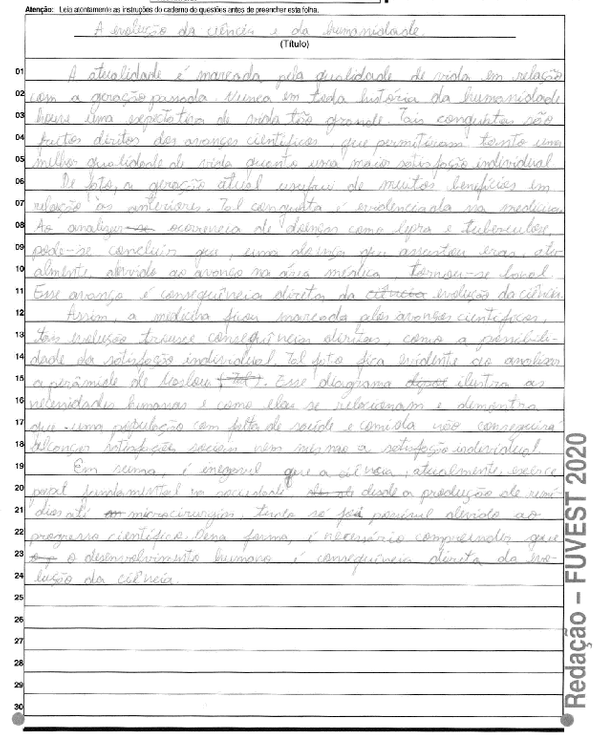 Atenção: Leia atentamente as instruções do caderno de questões antes de preencher esta folha.
A evolução da ciência e da humanidade.
(Título)
01 A atualidade é marcada pela qualidade de vida em relação
02 com a geração passada Nunca em toda história da humanidade
03 houve uma expectativa de vida tão grande. Tais conquistas são
04 frutos diretos dos avanços científicos que permitiram tanto uma
05 melhor qualidade de vida quanto uma maior satisfação individual
06 De fato, a geração atual usufrui de muitos benefícios em
07 relação às anteriores. Tal conquista é evidenciada na medicina.
08 Ao analizar a ocorrencia de doenças como lepra e tuberculose,
09 pode-se concluir que, uma doença que assustou eras, atu-
10 almente, devido ao avanço na área médica, tornou-se banal.
11 Esse avanço é consequência direta da ciência evolução da ciência.
12 Assim, a medicina ficou marcada pelos avanços científicos,
13 tais evolução trouxe consequências diretas, como a possibili-
14 dade da satisfação individual. Tal fato fica evidente ao analizar
15 a pirâmide de Maslow (Tal). Esse diagrama ilustra as
16 necessidades humanas e como elas se relacionam e demonstra
17 que uma população com falta de saúde e comida não conseguira
18 alcançar satisfação sociais nem mesmo a satisfação individual.
19 Em suma, é inegavel que a ciência, atualmente, exerce
20 papel fundamental na sociedade desde a produção de remé-
21 dios até microcirurgias. Tanto só foi possível devido ao
22 progresso científico. Dessa forma, é necessário compreender que
23 o desenvolvimento humano é consequência direta da evo-
24 lução da ciência.
25
26
27
28
29
30
Redação – FUVEST 2020